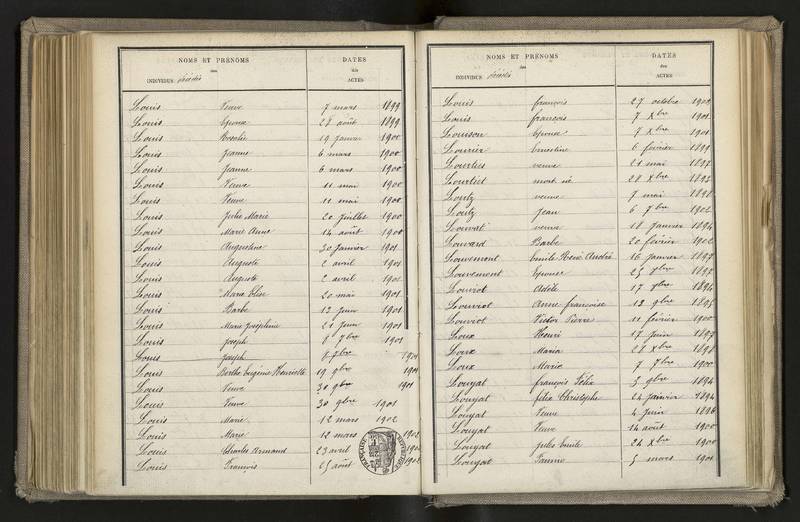 NOMS ET PRÉNOMS
DATES
des
des
INDIVIDUS Décédés
ACTES
Louis Veuve 7 mars 1899
Louis Epouse 28 août 1899
Louis Rosalie 19 janvier 1900
Louis Jeanne 6 mars 1900
Louis Jeanne 6 mars 1900
Louis Veuve 11 mai 1900
Louis Veuve 11 mai 1900
Louis Julie Marie 20 juillet 1900
Louis Marie Anne 14 août 1900
Louis Augustine 30 janvier 1901
Louis Auguste 2 avril 1901
Louis Auguste 2 avril 1901
Louis Maria Elise 20 mai 1901
Louis Barbe 13 juin 1901
Louis Marie Joséphine 21 juin 1901
Louis Joseph 8 7bre 1901
Louis Joseph 8 7bre 1901
Louis Berthe Eugénie Henriette 19 9bre 1901
Louis Veuve 30 9bre 1901
Louis Veuve 30 9bre 1901
Louis Marie 12 mars 1902
Louis Marie 12 mars 1902
Louis Charles Armand 23 avril 1902
Louis François 25 août 1902
NOMS ET PRÉNOMS
DATES
des
des
INDIVIDUS Décédés
ACTES
Louis françois 27 octobre 1902
Louis françois 7 Xbre 1901
Louison Epouse 7 Xbre 1901
Lourier Ernestine 6 février 1899
veuve 21 mai 1897
mort né 28 Xbre 1893
Loutz veuve 7 mai 1898
Loutz Jean 6 7bre 1902
Louvat veuve 18 janvier 1894
Louvard Barbe 20 février 1902
Louvement Emile René André 16 janvier 1897
Louvement Epouse 25 9bre 1897
Louviot Adèle 17 9bre 1894
Louviot Anne françoise 12 9bre 1895
Louviot Victor Pierre 11 février 1900
Loux Henri 17 juin 1897
Loux Maria 28 Xbre 1898
Loux Marie 7 7bre 1900
Louyat françois Félix 5 9bre 1894
Louyat félix Christophe 24 janvier 1894
Louyat Veuve 4 juin 1896
Louyat Veuve 14 août 1900
Louyat Jules Emile 24 Xbre 1900
Louyat 5 mars 1901